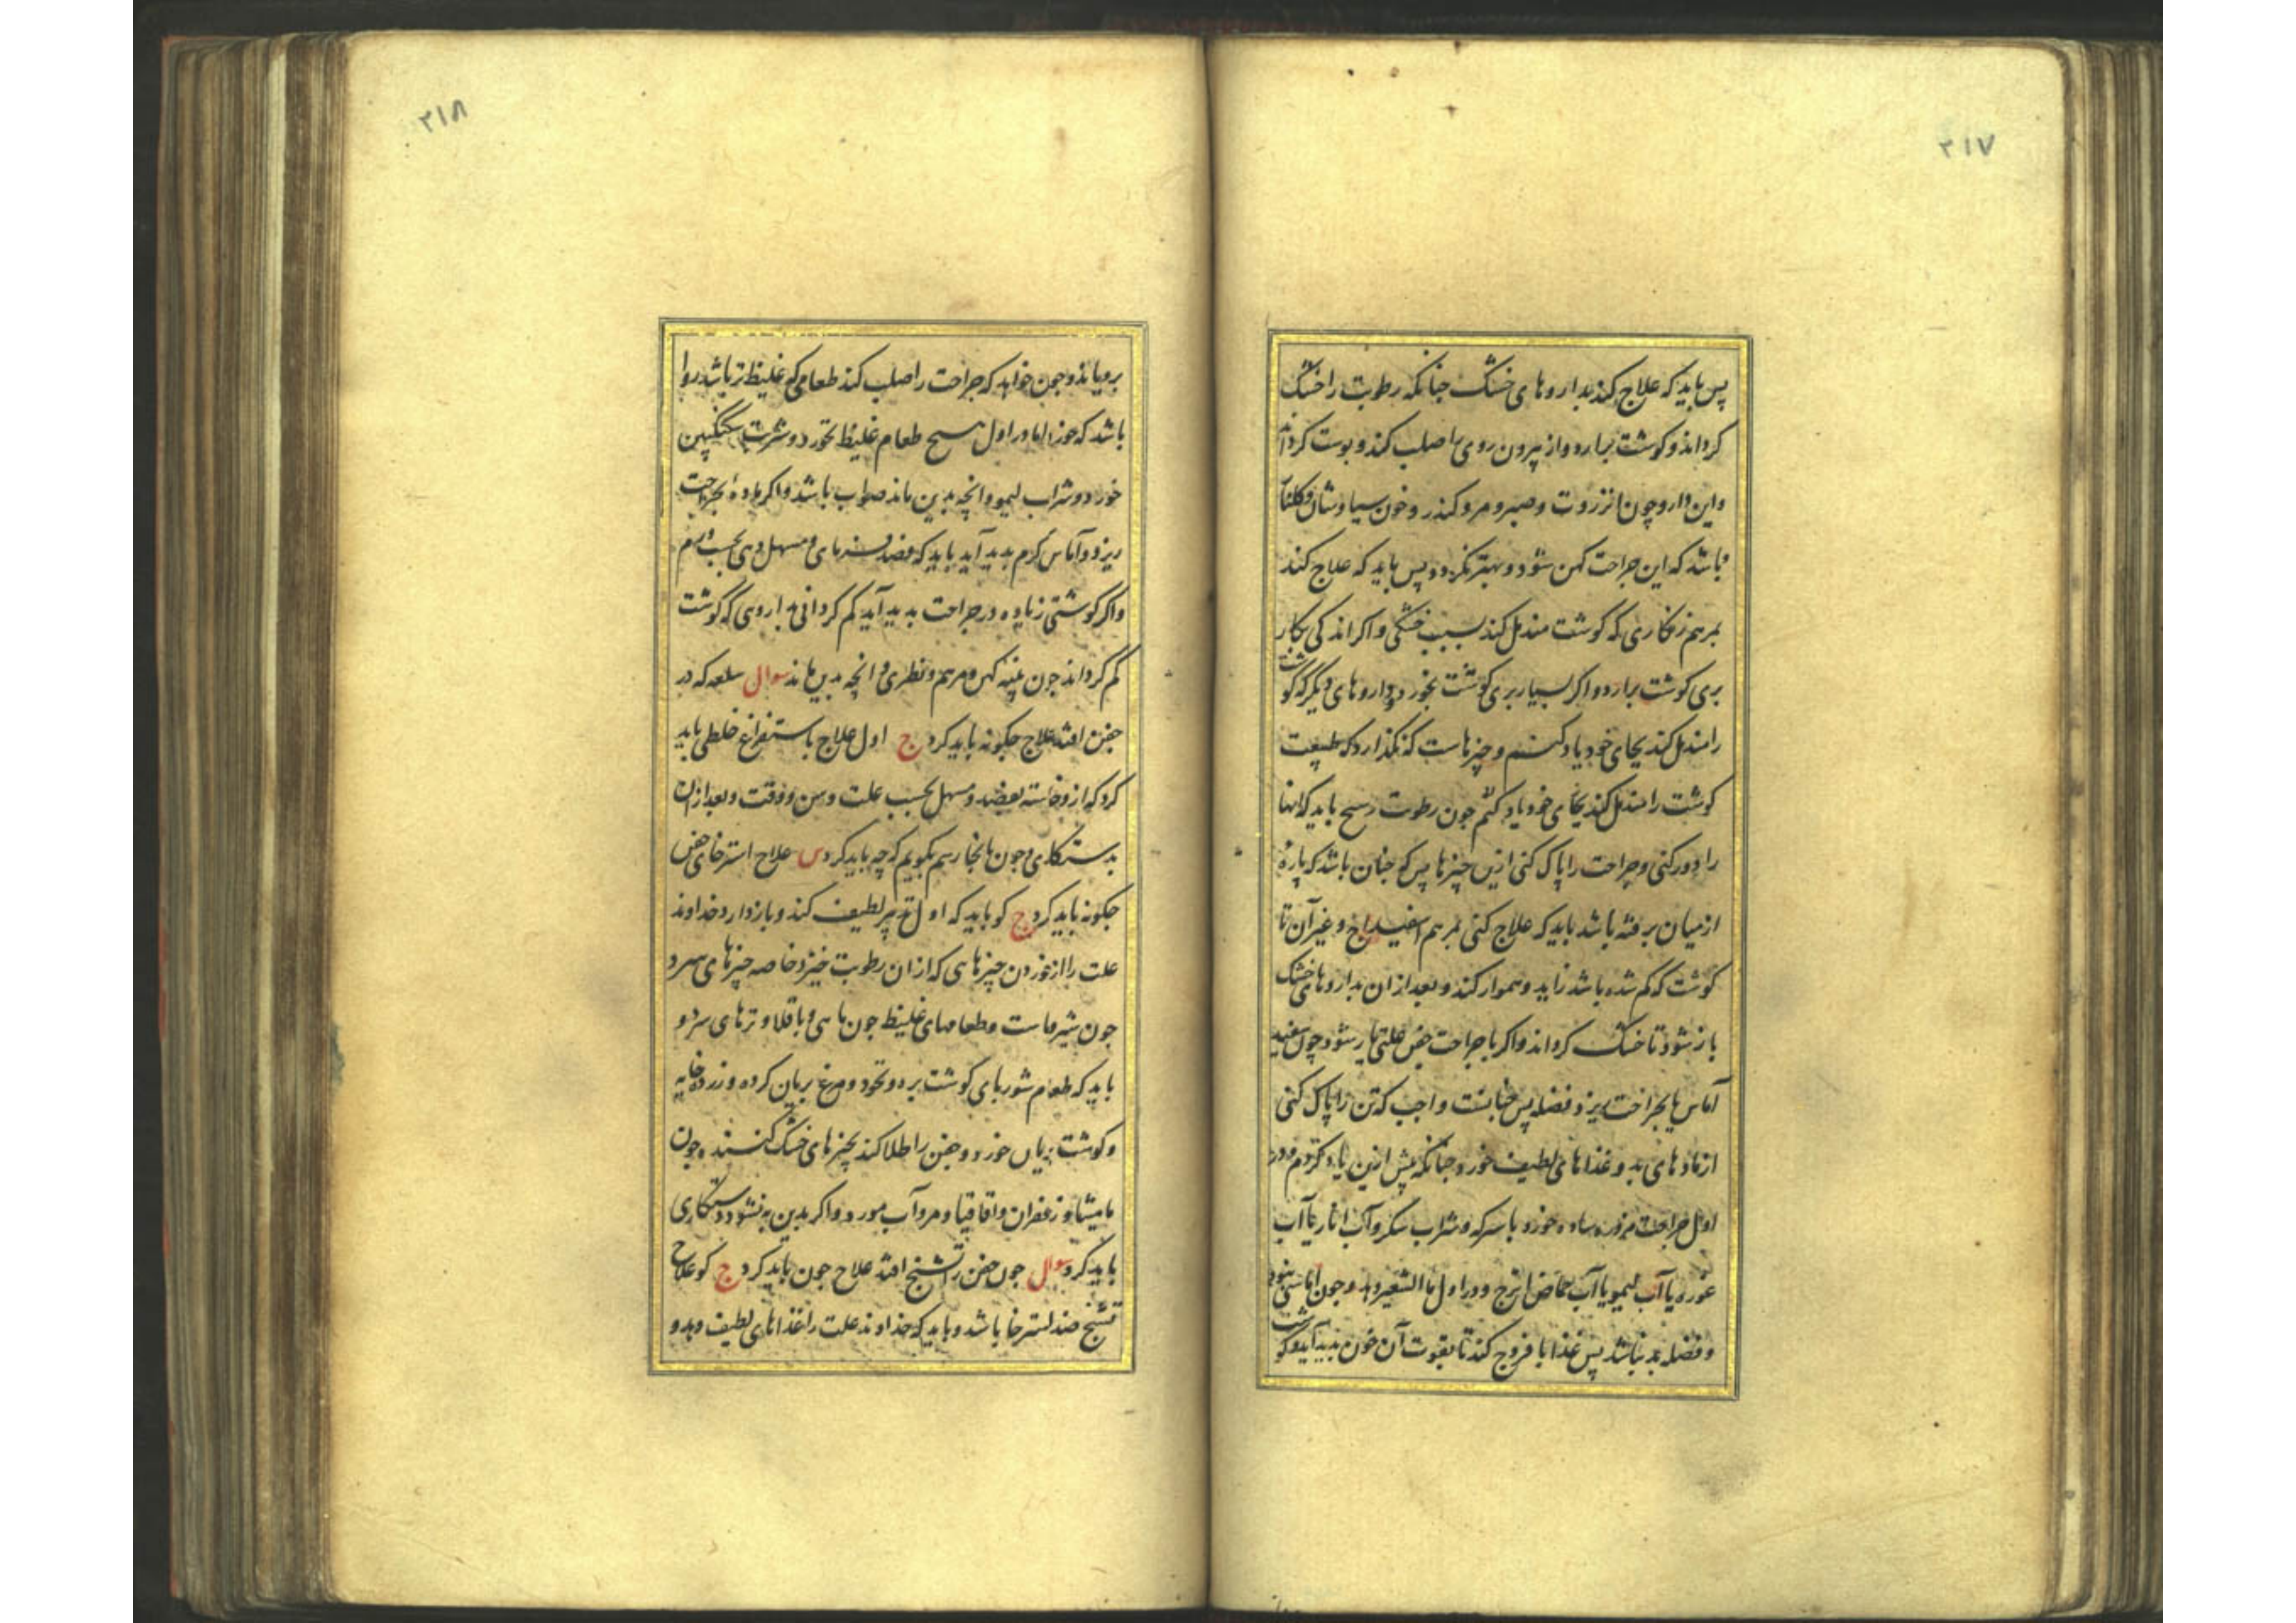 ۳۱۷
پس باید که علاج کند بداروهای خشک جنانکه رطوبت را خشک
کرداند و کوشت برارد و از بیرون روی را صلب کند و پوست کرداند
و این دارو چون انزروت و صبر و مر و کندر و خون سیاوشان و کلنار
باشد که این جراحت کهن شود و بهتر نکردد پس باید که علاج کند
بمرهم زنکاری که کوشت مندمل کند بسبب خشکی و اکر اندکی بکار
بری کوشت برارد و اکر بسیار بری کوشت بخورد و داروهای دیکر که کوشت
را مندمل کند بجای خود یاد کنیم و چیزهاست که نکذارد که طبیعت
کوشت را مندمل کند بجای خود یاد کنم جون رطوبت وسخ باید که انها
را دور کنی و جراحت را پاک کنی ازین چیزها پس که جنان باشد که پارۀ
از میان برفته باشد باید که علاج کنی بمرهم اسفیداج و غیر آن تا
کوشت که کم شده باشد زاید و هموار کند و بعد از ان بداروهای خشک
باز شود تا خشک کرداند و اکر با جراحت جفن علتی یار شود چون
آماس یا بجراحت ریزد فضله پس واجب که تن را پاک کنی
از مادهای بد و غذاهای لطیف خورد جنانکه پیش ازین یاد کردم و در
اول جراحت مزوره ساده خورد با سرکه و شراب سکر و آب انار یا آب
غوره یا آب لیمو یا آب حماض اترج و در اول ماالشعیر دهد و جون آماسی نبود
و فضله بد نباشد پس غذا با فروج کند تا بقوت آن خون بدید آید و کوشت
۳۱۸
برویاند و جون خواهد که جراحت را صلب کند طعامی که غلیظ تر باشد روا
باشد که خورد اما در اول هیچ طعام غلیظ نخورد و شربت سکنکبین
خورد و شراب لیمو و انچه بدین ماند صواب باشد و اکر مادۀ بجراحت
ریزد و آماس کرم بدید آید باید که فصد فرمای و مسهل دهی بحسب ورم
و اکر کوشتی زیاده در جراحت بدید آید کم کردانی بداروی که کوشت
کم کرداند جون پنبه کهن و مرهم و انچه بدین ماند سوال سلعه که در
جفن افتد علاج جکونه باید کرد ج اول علاج باستفراغ خلطی باید
کرد که ازو خاسته بفصد و مسهل بحسب علت و سن و وقت و بعد از ان
بدستکاری و جون بانجا رسم بکویم که چه باید کرد س علاج استرخای جفن
جکونه باید کرد ج کو باید که اول تدبیر لطیف کند و باز دارد خداوند
علت را از خوردن چیزهایی که از ان رطوبت خیزد خاصه چیزهای سرد
جون شیر ماست و طعامهای غلیظ جون ماهی و باقلا و ترهای سرد و
باید که طعام شوربای کوشت بره و نخود و مرغ بریان کرده و زرده خایه
و کوشت بریان خورد و جفن را طلا کند بچیزهای خشک کننده جون
مامیثا و زعفران و اقاقیا و مر و آب مورد و اکر بدین به نشود دستکاری
باید کرد سوال جون جفن را تشنج افتد علاج جون باید کرد ج کو علاج
تشنج ضد استرخا باشد و باید که خداوند علت را غذاهای لطیف دهد و